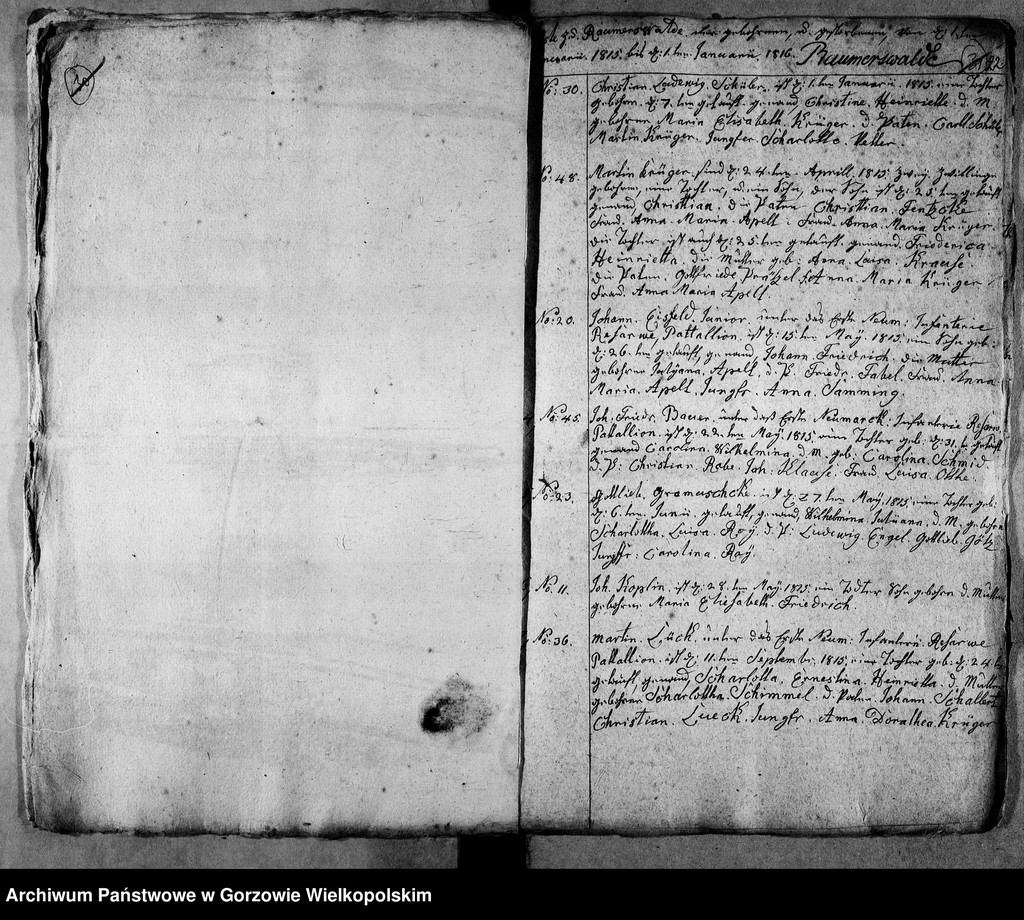 20
zu Raumerswalde, gebohrnen, u. gestorbenen, von d: 1. ten
Januarii 1815. bis d: 1. ten Januarii 1816. Raumerswalde
No: 30. Christian Ludewig Schüler, ist d: 1. ten Januarii. 1815. eine Tochter
gebohrn. d: 7. ten getauft. genand Christine, Heinriette. d. M.
gebohrne Maria Elisabeth Krüger. d. Paten. Carl
Martin Krüger. Jungfer Scharlotte Vetter.
No: 48. Martin Krüger, sind d: 24. ten Aprill. 1815. zwey zwillinge
gebohrn, eine Tochter, u. ein Sohn, der Sohn ist d: 25. ten getauft
genand Christtian, die Paten Christtian Fentzcke
Frau. Anna Maria Apell. Frau. Anna Maria Krüger.
die Tochter ist auch d: 25. ten getauft. genand, Friederica
Heinrietta, die Mutter geb: Anna Luisa Krause
die Paten, Gottfriede Anna Maria Krüger
Frau. Anna Maria Apell.
No: 20. Johann. Eisfeld. Junior, unter das Erste Neum: Infanterie
Resarwe, Pattallion. ist d: 15. ten May. 1815. ein Sohn geb:
d: 26. ten getauft, genand, Johann Friedrich. die Mutter
gebohrne Apell, d. P: Friedr. Tabel. Frau. Anna
Maria. Apell. Jungfr. Anna. Samming.
No: 45. Joh. Friedr. Bauer. unter daß Erste Neumarck. Infanterie Resarw.
Pattallion. ist d: 22. ten May. 1815. eine Tochter geb: d: 31. t. getauft
genand Carolina. Wilhelmina. d. M. geb. Carolina. Schmid
d. P: Christian. Rabe. Joh: Klause. Frau. Luisa.
No: 23. Gottlieb. Gramuschcke. ist d: 27. ten May, 1815, eine Tochter geb:
d: 6. ten Junii getauft, genand, Wilhelmina Juliana, d. M. gebohrn
Scharlottha. Luisa. Roÿ. d. P: Ludewig. Engel. Gottlieb. Götz
Jungfr: Carolina. Roÿ.
No. 11. Joh. Koplin. ist d: 28. ten May. 1815. ein Todter Sohn gebohrn d. Mutter
gebohrne Maria Eliesabeth. Friedrich.
No: 36. Martin. Lück. unter das Erste Neum: Infanterii. Resarwe
Pattallion. ist d: 11. ten Septembr, 1815, eine Tochter geb: d: 24. t.
getauft genand, Scharlotta, Ernestina. Heinrietta. d. Mutter
gebohrne Scharlottha. Schimmel. d. Paten. Johann. Schallert
Christian. Lueck. Jungfr. Anna. Dorathea. Krüger
Archiwum Państwowe w Gorzowie Wielkopolskim